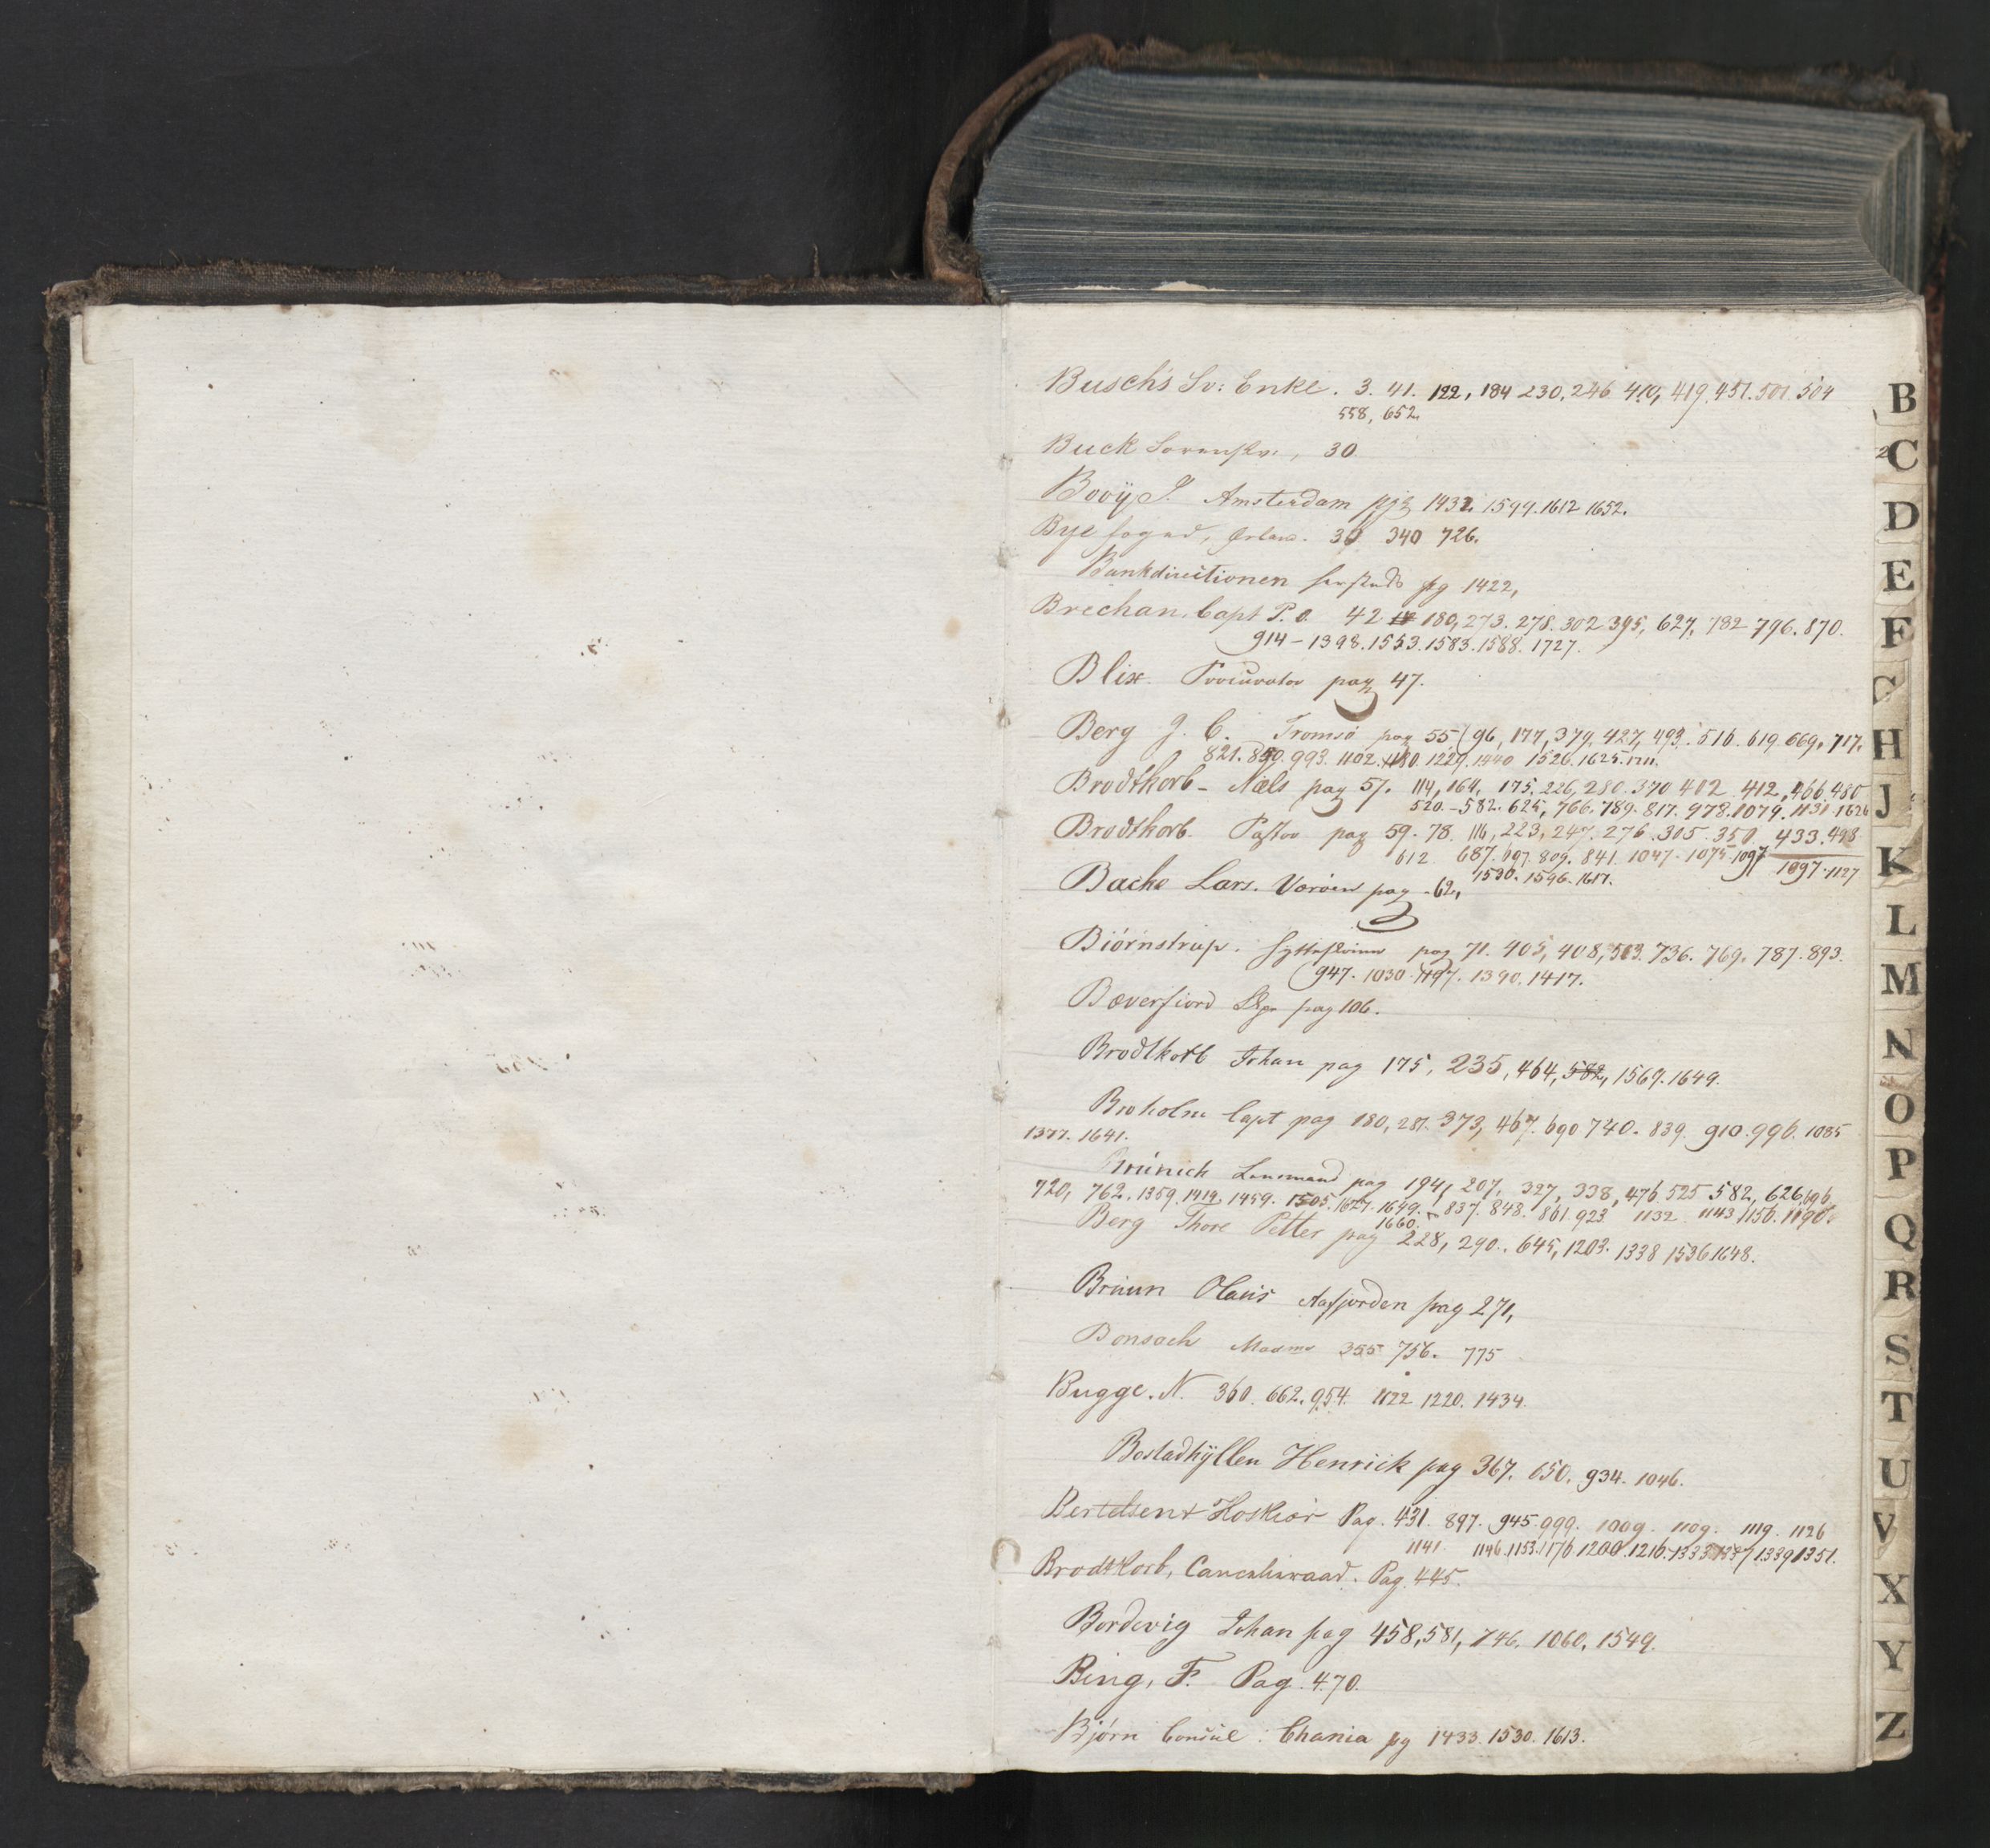 Busch's Sv: Enke. 3. 41. 122, 184 230, 246 410, 419. 451. 501. 504
558, 652.
Buck 30
Booÿ J. Amsterdam pg 1432. 1599. 1612 1652.
Bye foged, Ørland. 30 340 726.
Bankdirectionen pg 1422,
Brechan, Capt P. O. 42 180, 273. 278. 302 395, 627, 732 796. 870.
914 - 1398. 1553. 1583. 1588. 1727.
Blix. Procurator pag 47.
Berg J. C. Tromsö pag 55 (96, 177, 379, 427, 493. 516. 619. 669. 717.
821. 850. 993. 1102. 1180. 1229. 1440 1526. 1625. 1711.
Brodtkorb - Niels pag 57. 114, 164, 175. 226, 280. 370 402 412, 466 480
520. - 582. 625, 766. 789. 817. 978. 1079. 1131 1626
Brodtkorb. Pastor pag 59. 78. 116, 223, 247. 276. 305. 350. 433. 498
612 687. 697. 809. 841. 1047. 1075 1097 1097. 1127
1530. 1596. 1617.
Bache Lars.Væröen pag 62,
Biörnstrup. pag 71. 405, 408, 563. 736. 769. 787. 893.
947. 1030. 1197. 1390. 1417.
Bæverfiord Skpr pag 106.
Brodtkorb Johan pag 175, 235, 464, 582, 1567. 1649.
Broholm Capt pag 180, 281. 373, 467. 690 740. 839. 910. 996. 1085
1377. 1641.
Brünech Lensmand pag 194, 207. 327, 338, 476 525 582, 626, 696
720, 762. 1359. 1412. 1459. 1505. 1627. 1649. 837. 848. 861. 923. 1132 1143 1156. 1190.
1660.
Berg Thore Petter pag 228, 290., 645, 1203. 1338 1536 1648.
Bruun Olaus Aafjorden pag 271,
Bonsach Madme 355 756. 775
Bugge. N. 360. 662. 954. 1122 1220. 1434.
Bostadhÿllen Henrick pag 367. 650. 934. 1046.
Bertelsen & Hoskiær Pag. 431. 897. 945. 999. 1009. 1109. 1119. 1126
1141 1146. 1153. 1176 1200. 1216. 1333. 1337 1339 1351.
Brodtkorb, Cancelieraad. Pag. 445.
Bordevig Johan pag 458, 581, 746. 1060, 1549.
Bing, F. Pag. 470.
Bjørn Consul: Chania pg 1433. 1530. 1613.
B
C
D
E
F
G
H
J
K
L
M
N
O
P
Q
R
S
T
U
V
X
Y
Z